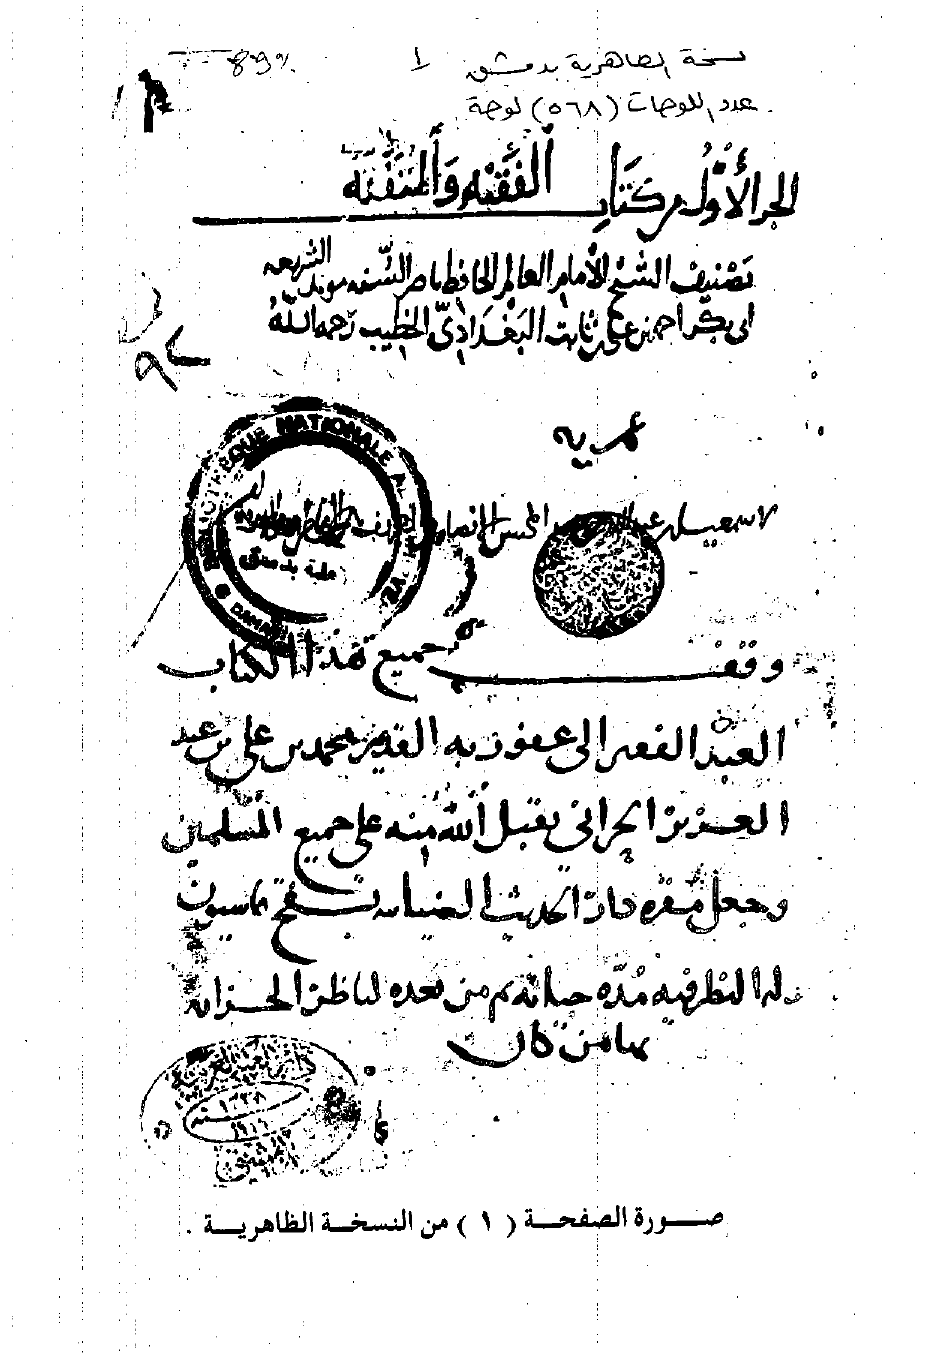 نسخة الظاهرية بدمشق ١
عدد اللوحات (٥٦٨) لوحة
الجزء الأول من كتاب الفقيه والمتفقه
تصنيف الشيخ الإمام العالم الحافظ ناصر السنة مؤيد الشريعة
أبي بكر أحمد بن علي بن ثابت البغدادي الخطيب رحمه الله
عمرية
BIBLIOTHEQUE NATIONALE AL
DAMAS
لاسمعيل بن
وقف جميع هذا الكتاب
العبد الفقير إلى عفو ربه القدير محمد بن علي بن عبد
العزيز الحراني تقبل الله منه على جميع المسلمين
وجعل مقره دار الحديث الضيائية بسفح قاسيون
له النظر فيه مدة حياته ثم من بعده لناظر الخزانة
بها من كان
صورة الصفحة ( ١ ) من النسخة الظاهرية .